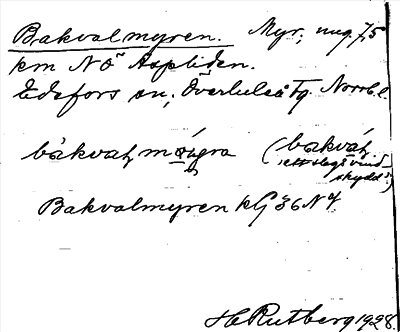 Bakvalmyren. Myr, ung. 7,5
km NÖ Aspliden.
Edefors sn, Överluleå tg. Norrb. l.
bakvaḷ myra (bakvaḷ
"ett slags vind-
skydd".)
Bakvalmyren kG 36 N 4
H Rutberg 1928.